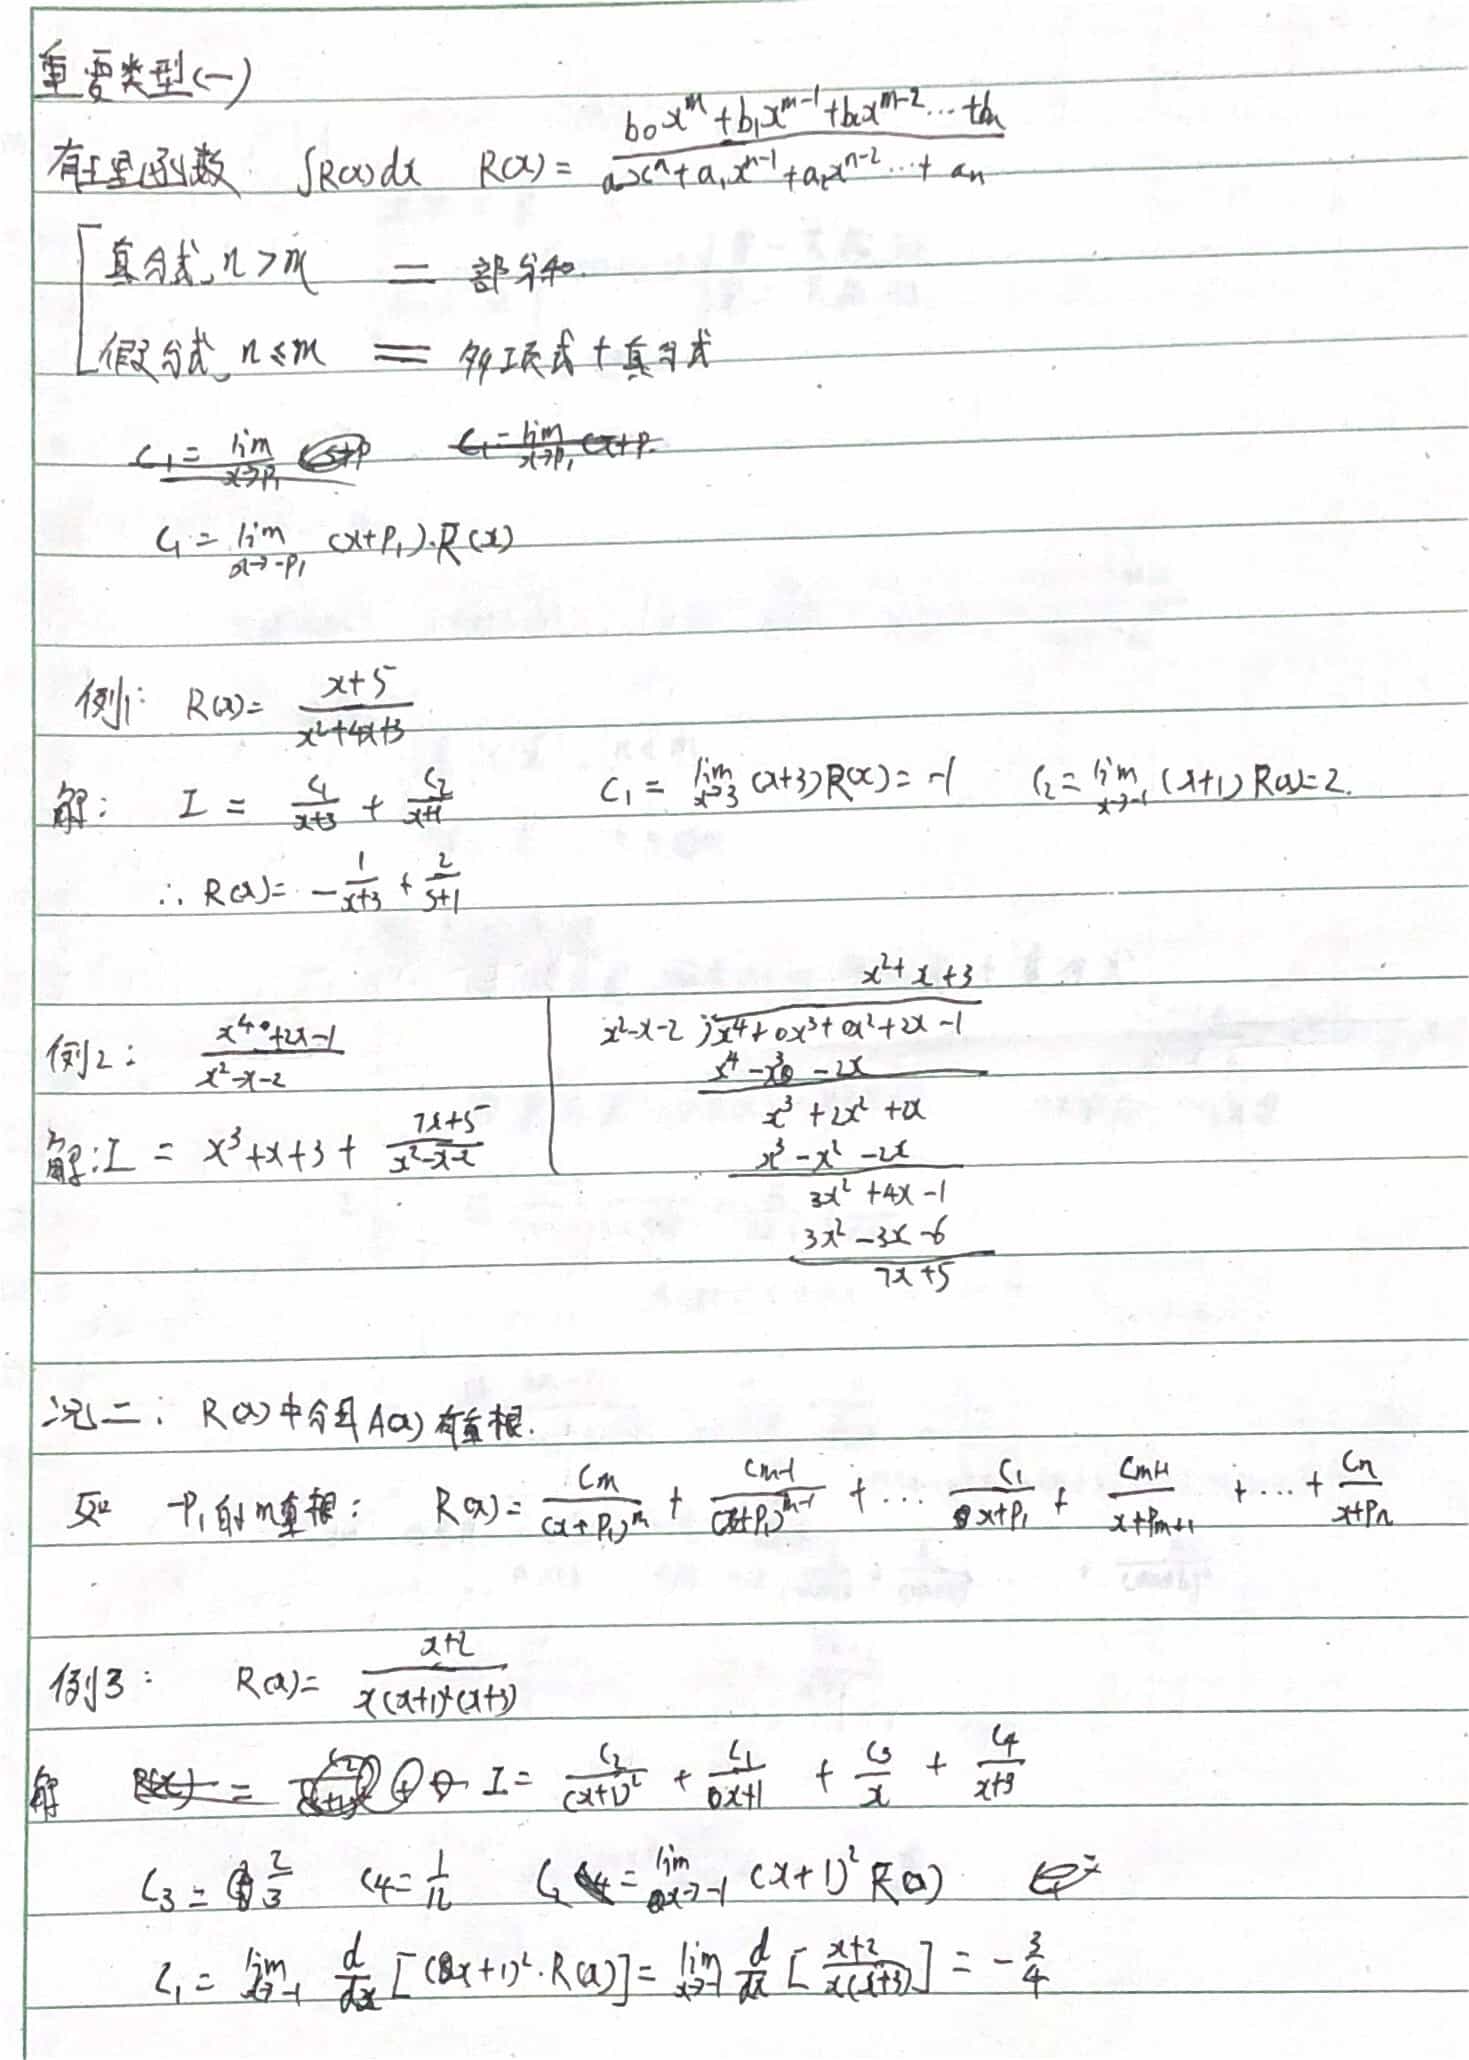 重要类型(一)
有理函数 ∫R(x)dx R(x) = (b₀x^m + b₁x^(m-1) + b₂x^(m-2) ... + bₙ) / (a₀x^n + a₁x^(n-1) + a₂x^(n-2) ... + aₙ)
真分式, n > m = 部分和.
假分式, n ≤ m = 多项式 + 真分式
C₁ = lim x→p₁ C₁ = lim x→p₁ (x+p.
C₁ = lim x→-p₁ (x+p₁)·R(x)
例1: R(x) = (x+5) / (x²+4x+3)
解: I = C₁/(x+3) + C₂/(x+1) C₁ = lim x→3 (x+3) R(x) = -1 C₂ = lim x→-1 (x+1) R(x) = 2.
∴ R(x) = -1/(x+3) + 2/(s+1)
x² + x + 3
例2: (x⁴+2x-1) / (x²-x-2) x²-x-2 ) x⁴+0x³+0x²+2x-1
x⁴ - x³ - 2x
x³ + 2x² + 2x
解: I = x³+x+3 + (7x+5) / (x²-x-2) x³ - x² - 2x
3x² + 4x - 1
3x² - 3x - 6
7x + 5
况二: R(x)中分母A(x)有重根.
如 -p₁的m重根: R(x) = Cm/(x+p₁)^m + Cm-1/(x+p₁)^(m-1) + ... C₁/(x+p₁) + Cm+1/(x+pm+1) + ... + Cn/(x+pn)
例3: R(x) = (x+2) / (x(x+1)²(x+3))
解 R(x) = I = C₂/(x+1)² + C₁/(x+1) + C₃/x + C₄/(x+3)
C₃ = 2/3 C₄ = 1/12 C₂ = lim x→-1 (x+1)² R(x)
C₁ = lim x→-1 d/dx [(x+1)²·R(x)] = lim x→-1 d/dx [(x+2) / (x(x+3))] = -3/4